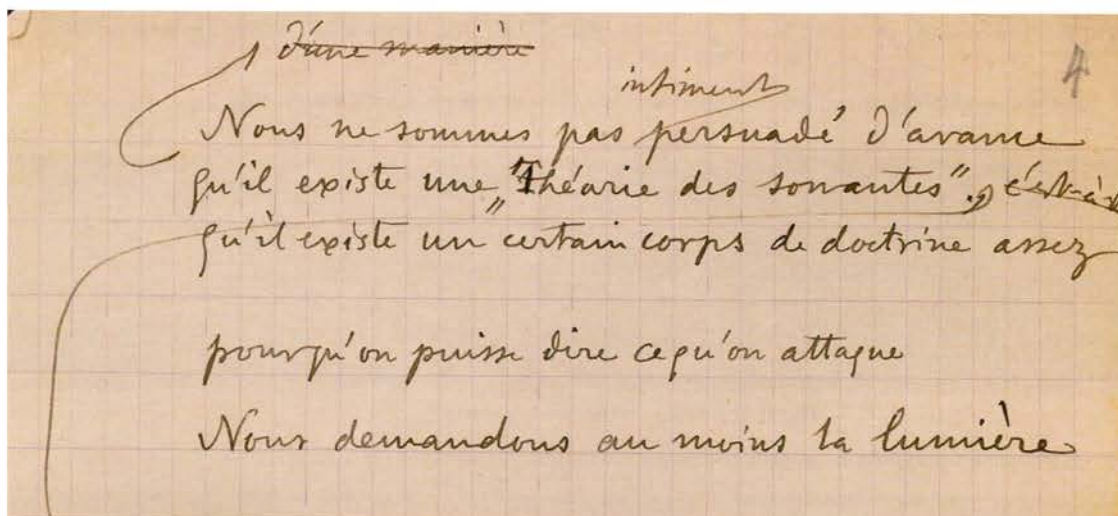 4
d'une manière
intiment
Nous ne sommes pas persuadé d'avance
qu'il existe une "Théorie des sonantes"., c'est-à-d
qu'il existe un certain corps de doctrine assez
pourqu'on puisse dire cequ'on attaque
Nous demandons au moins la lumière